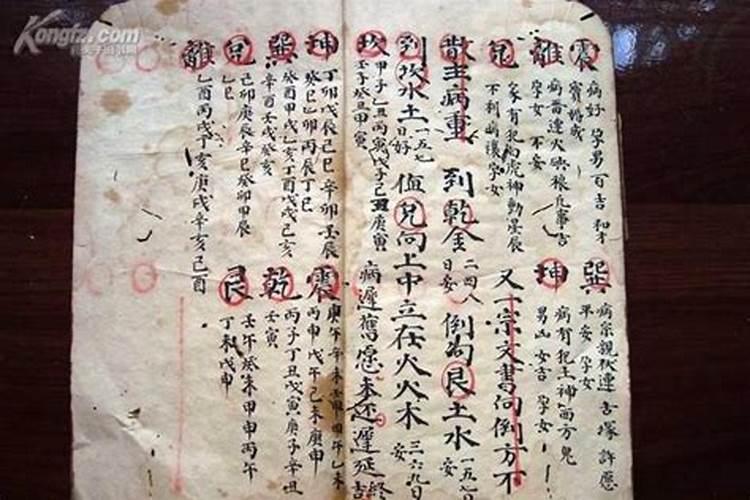 震
病好 孕男 百吉 和才
實婚成
離
病苗連火
孕女 不安
兑
家有犯白虎神動星辰
不利 孕女
巽
病宗親伏連 古塚許愿
平安 孕女
坤
病有犯土神西方鬼
男凶女吉 孕女
又一宗文書向倒方不
散主病重
到乾金 二四八日安
倒向艮土水 一五七日安
到坎水土 一五七日好
值兑向上中立在火火木 三六九日安
坎
甲子乙丑丙寅戊子己丑庚寅
壬子癸丑甲寅
病遲舊愿未还遲延吉
坤
丁卯戊辰己巳辛卯壬辰
癸巳乙卯丙辰丁巳
巽
癸酉甲戌乙亥丁酉戊戌己亥
辛酉壬戌癸亥
兑
己卯庚辰辛巳癸卯甲辰
乙巳
離
乙酉丙戌丁亥庚戌辛亥己酉
震
庚午辛未壬申
丙申戊午己未庚申
乾
丙子丁丑戊寅庚子辛
壬寅
艮
壬午癸未甲申丙午
丁未戊申
Kongfz.com